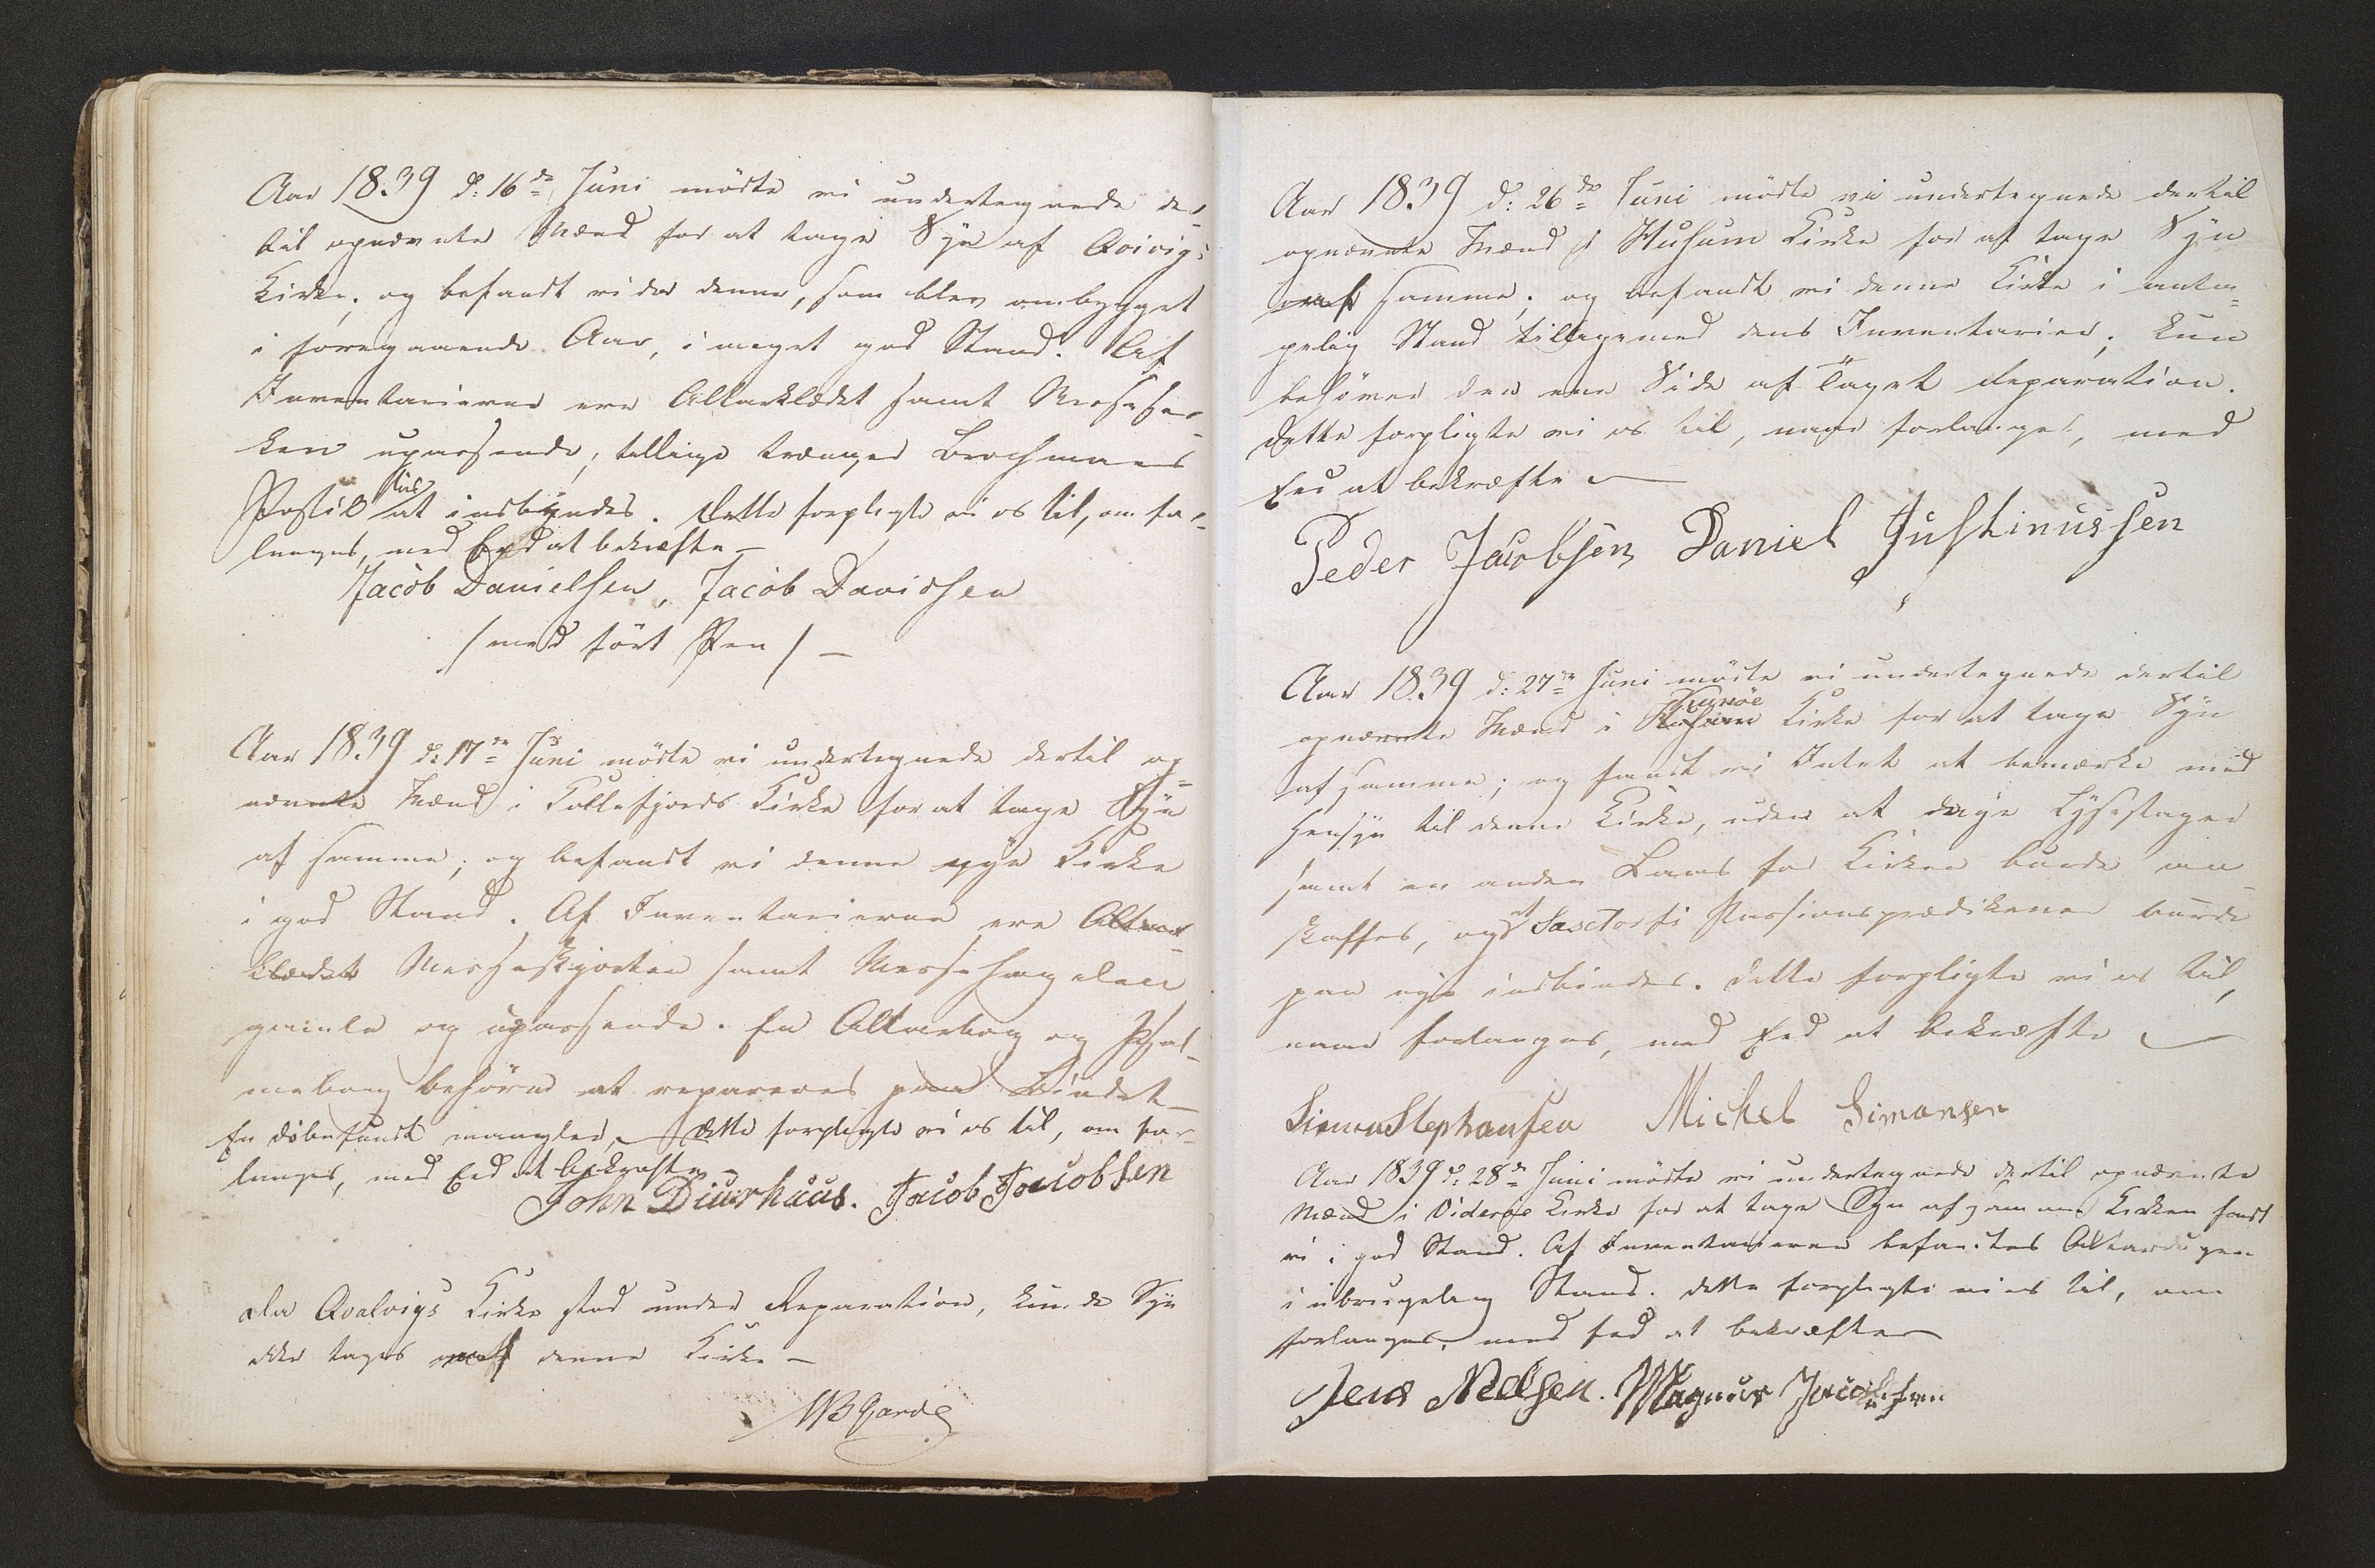 Aar 1839 d: 16de Juni mödte vi undertegnede der-
til opnævnte Mænd for at tage Syn af Qvivigs
Kirke, og befandt vi da denne, som blev ombygget
i foregaaende Aar, i meget god Stand. Af
Inventarierne ere Alterklædet samt Messeser-
ken upassende; tillige trænger Brochmanns
Postil til at indbindes. Dette forpligte vi os til, om for-
langes, med Eed at bekræfte —
Jacob Danielsen, Jacob Davidsen
/ med ført Pen / —
Aar 1839 d: 17de Juni mödte vi undertegnede dertil op-
nævnte Mænd i Kollefjords Kirke for at tage Syn
af samme; og befandt vi denne nye Kirke
i god Stand. Af Inventarierne ere Altar-
klædet Messeskjorten samt Messehagelen
gamle og upassende. En Altarbog og Psal-
mebog behöver at repareres paa Bindet —
En Döbefundt mangler, — Dette forpligte vi os til, om for-
langes, med Eed at bekræfte
John Diurhuus. Jacob Jacobsen
Da Qvalvigs Kirke stod under Reparation, kunde Syn
ikke tages af denne Kirke —
Garde
Aar 1839 d: 26de Juni mödte vi undertegnede dertil
opnævnte Mænd i Husum Kirke for at tage Syn
af samme; og befandt vi denne Kirke i antage-
gelig Stand tilligemed dens Inventarier; kun
behöver den ene Side af Taget Reparation.
Dette forpligte vi os til, naar forlanges, med
Eed at bekræfte —
Peder Jacobsen Daniel Justinussen
Aar 1839 d: 27de Juni mödte vi undertegnede dertil
opnævnte Mænd i Husum Kunöe Kirke for at tage Syn
af samme; og fandt vi Intet at bemærke med
Hensyn til denne Kirke, uden at Lysestager
samt en anden Laas for Kirken burde an-
skaffes, og at Passionsprædikener burde
paa nye indbindes. Dette forpligte vi os til,
naar forlanges, med Eed at bekræfte —
Simon Stephansen Michel Simonsen
Aar 1839 d: 28de Juni mödte vi undertegnede dertil opnævnte
Mænd i Videröe Kirke for at tage Syn af samme. Kirken fandt
vi i god Stand. Af Inventarierne befandtes Altardugen
i ubrugelig Stand. Dette forpligte vi os til, om
forlanges, med Eed at bekræfte —
Jens Nielsen. Magnus Jacobsen